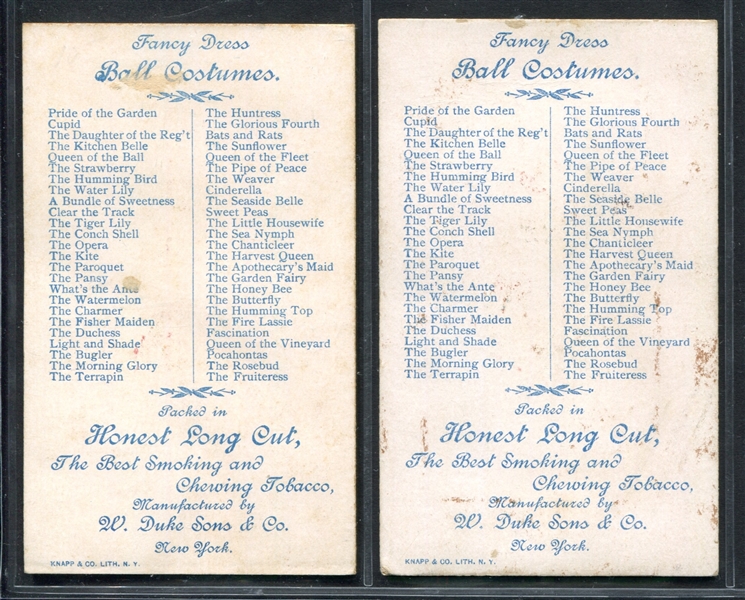 Fancy Dress
Ball Costumes.
Pride of the Garden
Cupid
The Daughter of the Reg't
The Kitchen Belle
Queen of the Ball
The Strawberry
The Humming Bird
The Water Lily
A Bundle of Sweetness
Clear the Track
The Tiger Lily
The Conch Shell
The Opera
The Kite
The Paroquet
The Pansy
What's the Ante
The Watermelon
The Charmer
The Fisher Maiden
The Duchess
Light and Shade
The Bugler
The Morning Glory
The Terrapin
The Huntress
The Glorious Fourth
Bats and Rats
The Sunflower
Queen of the Fleet
The Pipe of Peace
The Weaver
Cinderella
The Seaside Belle
Sweet Peas
The Little Housewife
The Sea Nymph
The Chanticleer
The Harvest Queen
The Apothecary's Maid
The Garden Fairy
The Honey Bee
The Butterfly
The Humming Top
The Fire Lassie
Fascination
Queen of the Vineyard
Pocahontas
The Rosebud
The Fruiteress
Packed in
Honest Long Cut,
The Best Smoking and
Chewing Tobacco,
Manufactured by
W. Duke Sons & Co.
New York.
KNAPP & CO. LITH. N. Y.
Fancy Dress
Ball Costumes.
Pride of the Garden
Cupid
The Daughter of the Reg't
The Kitchen Belle
Queen of the Ball
The Strawberry
The Humming Bird
The Water Lily
A Bundle of Sweetness
Clear the Track
The Tiger Lily
The Conch Shell
The Opera
The Kite
The Paroquet
The Pansy
What's the Ante
The Watermelon
The Charmer
The Fisher Maiden
The Duchess
Light and Shade
The Bugler
The Morning Glory
The Terrapin
The Huntress
The Glorious Fourth
Bats and Rats
The Sunflower
Queen of the Fleet
The Pipe of Peace
The Weaver
Cinderella
The Seaside Belle
Sweet Peas
The Little Housewife
The Sea Nymph
The Chanticleer
The Harvest Queen
The Apothecary's Maid
The Garden Fairy
The Honey Bee
The Butterfly
The Humming Top
The Fire Lassie
Fascination
Queen of the Vineyard
Pocahontas
The Rosebud
The Fruiteress
Packed in
Honest Long Cut,
The Best Smoking and
Chewing Tobacco,
Manufactured by
W. Duke Sons & Co.
New York.
KNAPP & CO. LITH. N. Y.